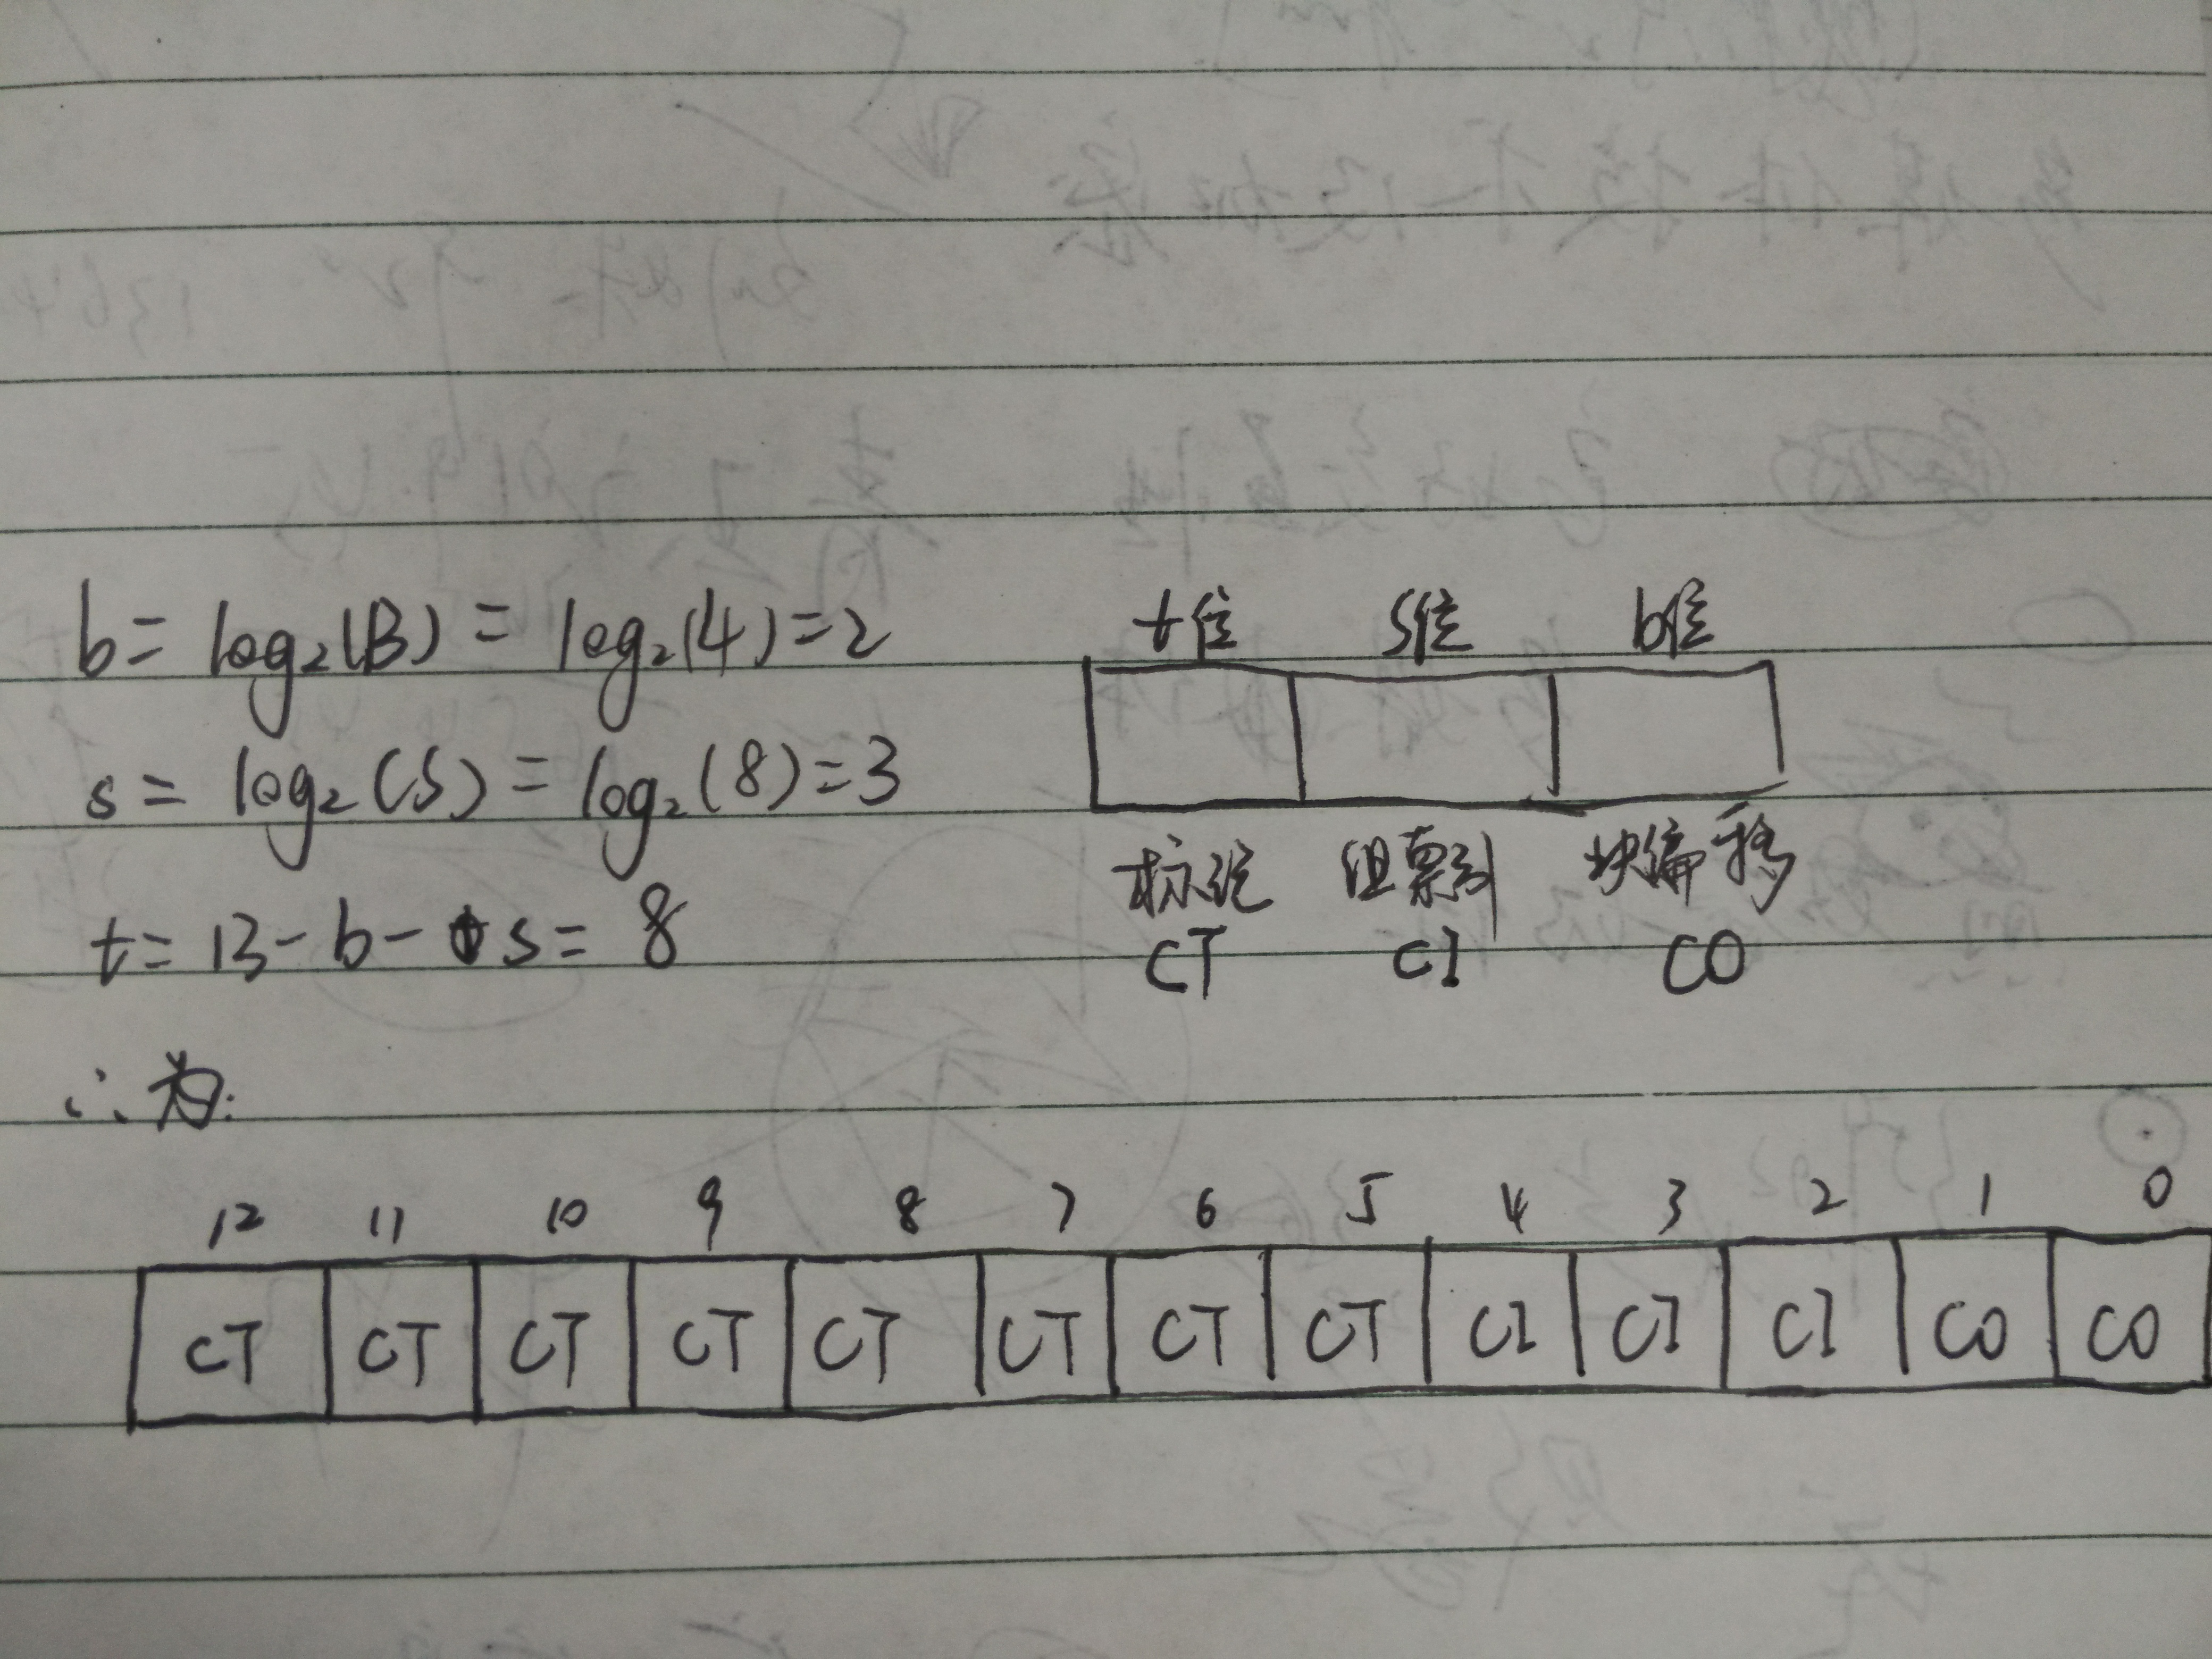 b = log₂(B) = log₂(4) = 2
s = log₂(S) = log₂(8) = 3
t = 13 - b - s = 8
t位 S位 b位
标记 组索引 块偏移
CT CI CO
∴为:
12 11 10 9 8 7 6 5 4 3 2 1 0
CT CT CT CT CT CT CT CT CI CI CI CO CO